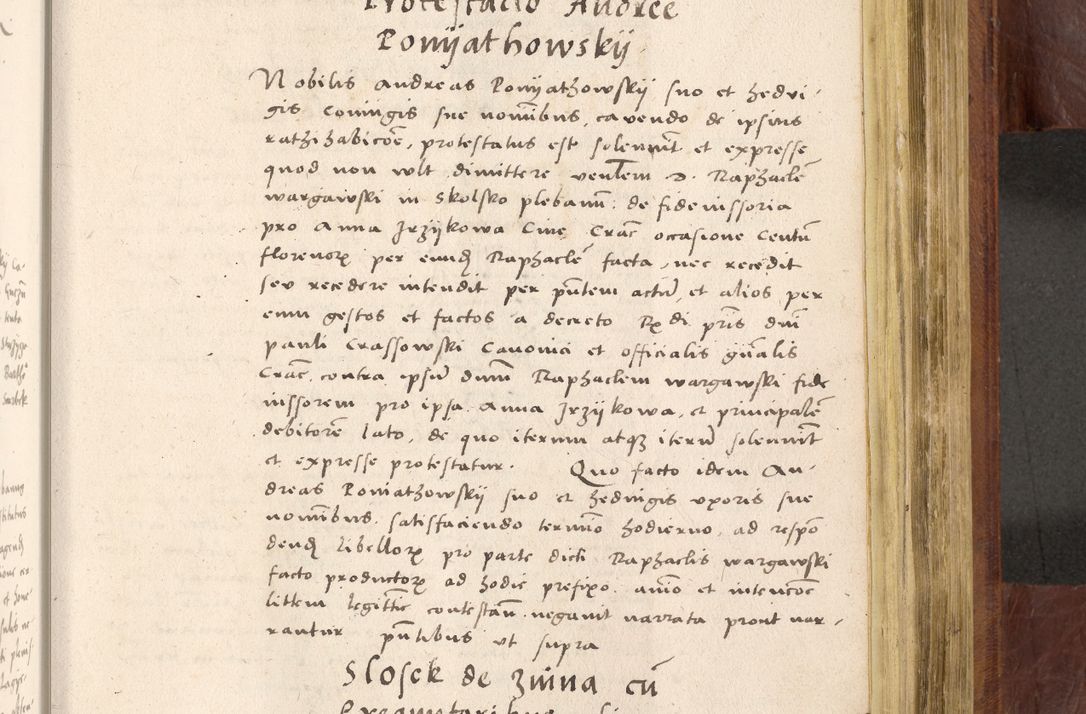 Protestatio Andree
Ponijathowskij
Nobilis Andreas Ponijathowskij suo et hedvi-
gis Coniugis sue nomībus, cavendo de ipsius
rathihabicoē, protestatus est solennit et expresse
quod non vult dimittere venlem D. Raphaelē
wargawski in Skolsko plebanū. de fideiussoria
pro Anna Jrzijkowa Cive Crac̄ occasione Centū
florenorꝝ per eund Raphaelē facta, nec recedit
seu recedere intendit per pn̄tem actū, et alios per
eum gestos et factos a decreto Rdi pris dni
pauli Crassowski Canonici et officialis gn̄alis
Crac̄. contra ipsū dnm̄ Raphaelem wargawski fide
iussorem pro ipsa Anna Jrzijkowa, et principalē
debitorē lato, de quo iterum atqꝫ iterū solennit
et expresse protestatur. Quo facto idem An-
dreas Poniathowskij suo et hedvigis uxoris sue
nomībus. satisfaciendo termīo hodierno, ad respō
dend Libellorꝝ pro parte dicti Raphaelis wargawski
facto productorꝝ ad hodie prefixo. anīo et intencoē
littem legittīe contestan̄. negavit narrata prout nar-
rantur pn̄tibus ut supra
Slosek de zivina cū